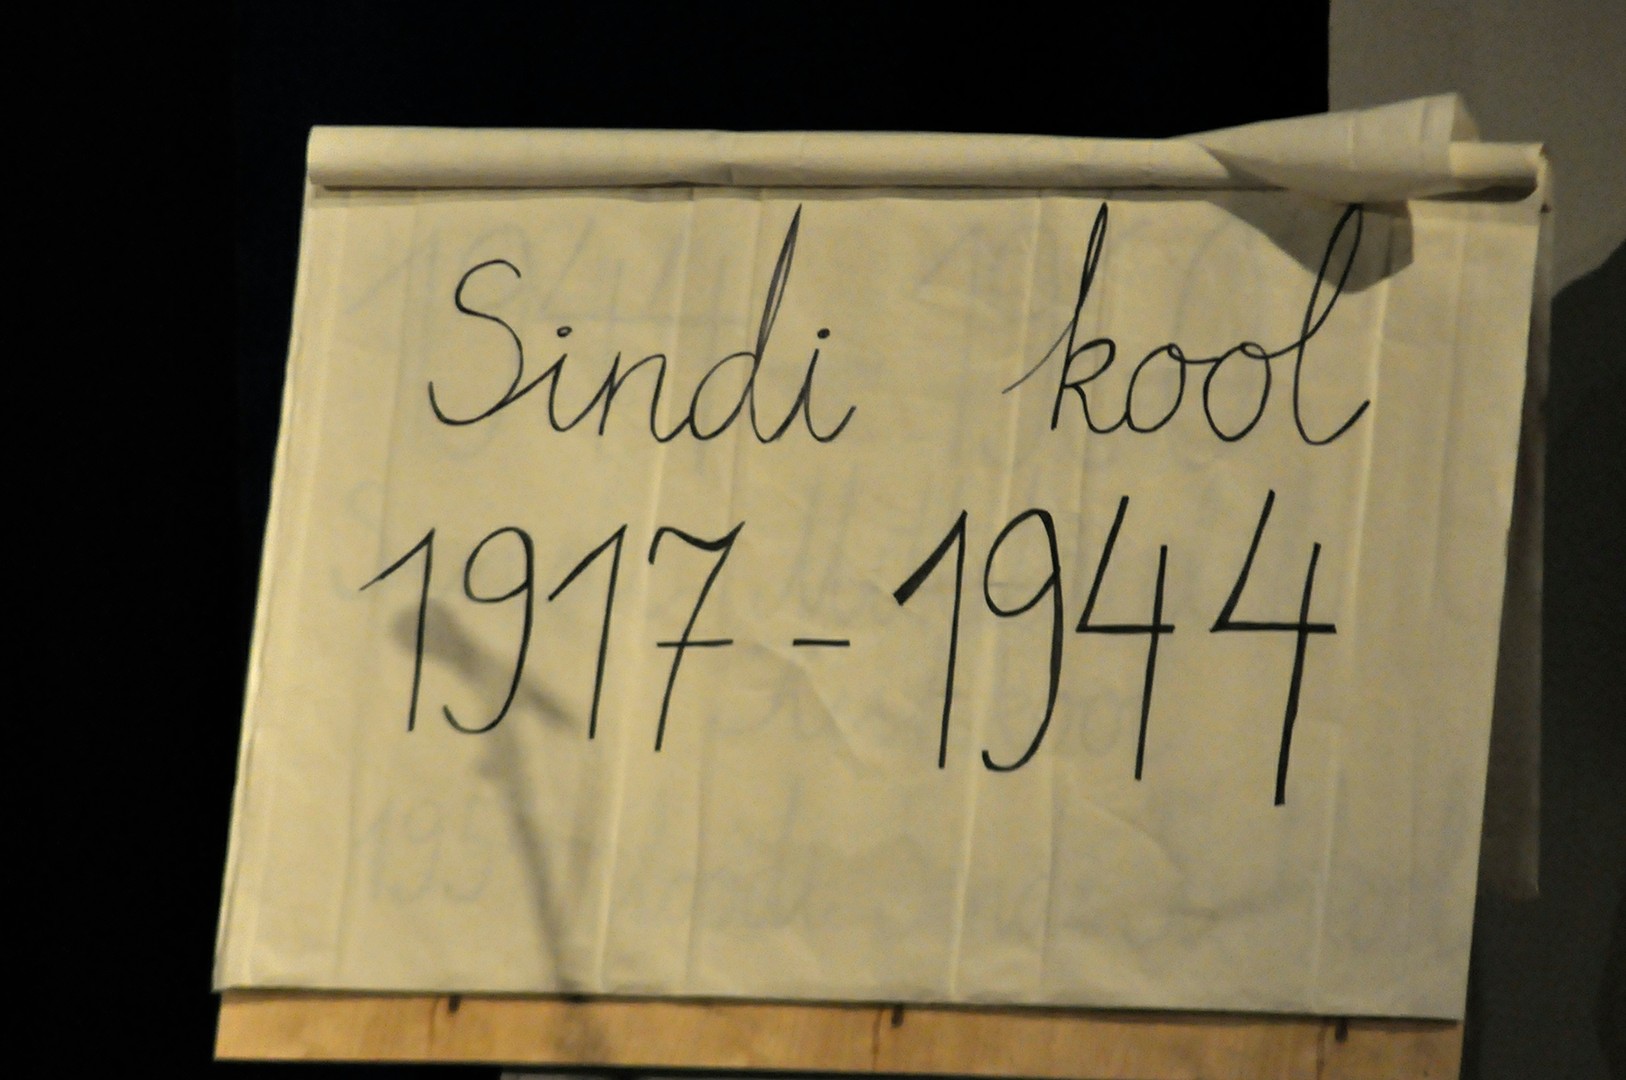 Sindi kool
1917-1944